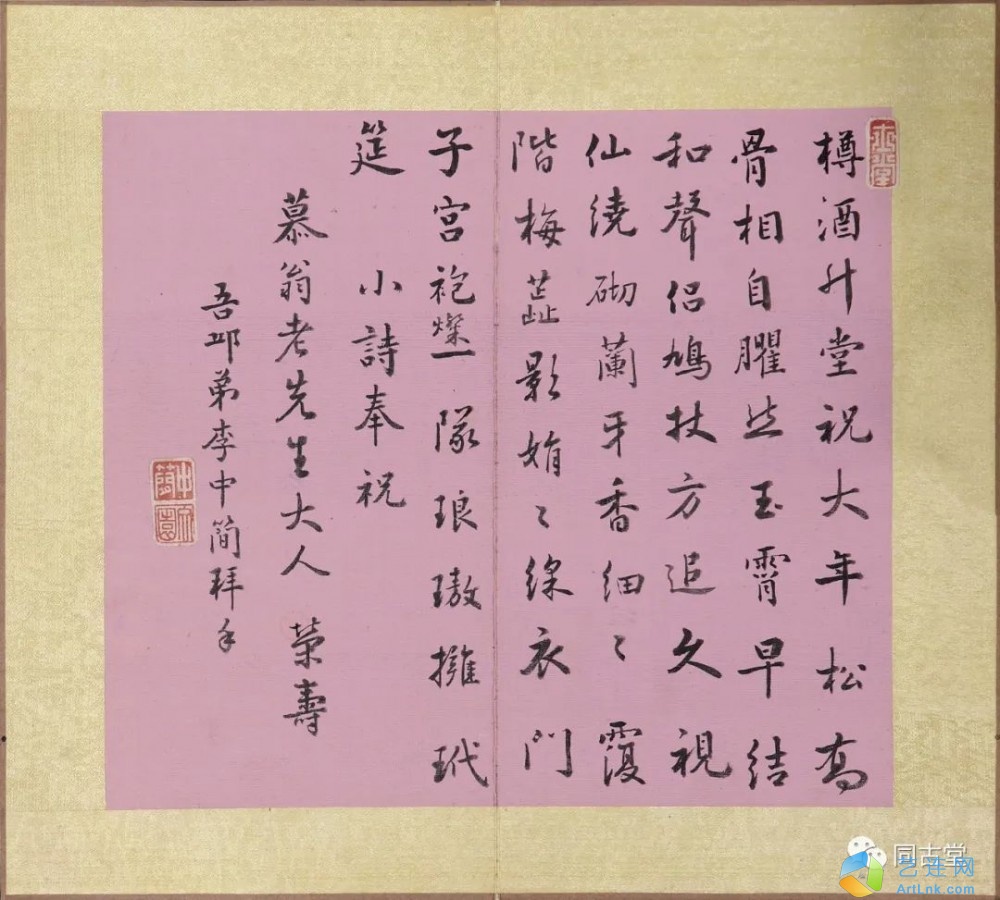 樽酒升堂祝大年松高
骨相自臞然玉霄早結
和聲侶鳩杖方追久視
仙繞砌蘭牙香細〻霞
階梅蕋影娟〻綵衣門
子宮袍燦一隊琅璈擁玳
筵 小詩奉祝
慕翁老先生大人 榮壽
吾邱弟李中簡拜手
中簡
文園
同古堂
艺连网
ArtLnk.com